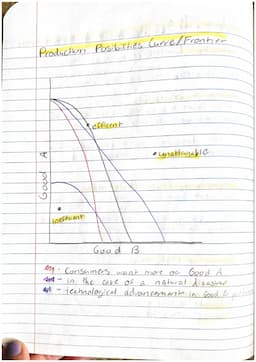 Production Posibilities Curve/Frontier
efficent
unattainable
Good A
inefficent
Good B
- Consumers want more on Good A
- in the case of a natural disaster
- technological advancements in Good